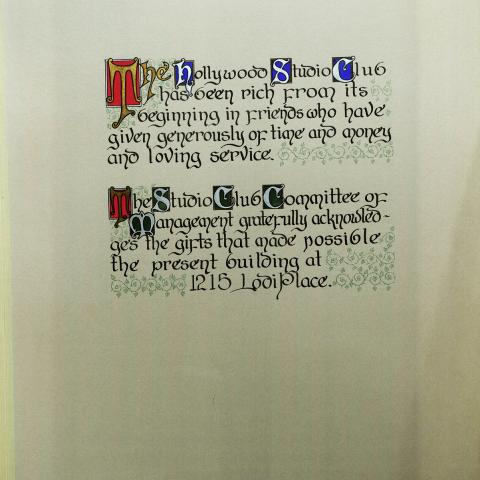 The Hollywood Studio Club
has been rich from its
beginning in friends who have
given generously of time and money
and loving service.
The Studio Club Committee of
Management gratefully acknowled-
ges the gifts that made possible
the present building at
1215 Lodi Place.